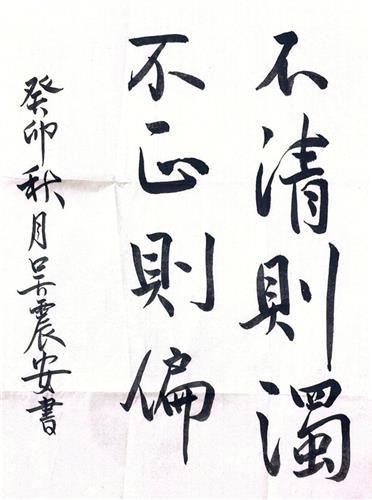 不清則濁
不正則偏
癸卯秋月吴震安書